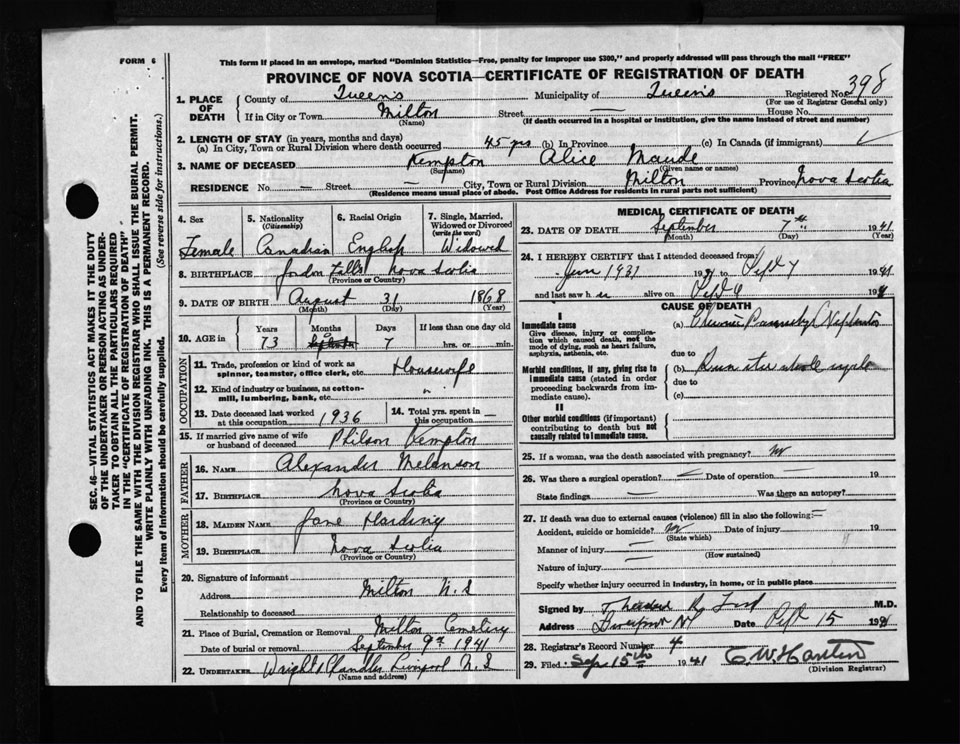 FORM 6
This form if placed in an envelope, marked "Dominion Statistics—Free, penalty for improper use $300," and properly addressed will pass through the mail "FREE"
PROVINCE OF NOVA SCOTIA—CERTIFICATE OF REGISTRATION OF DEATH
Registered No. 398
(For use of Registrar General only)
1. PLACE OF DEATH
County of Queens Municipality of Queens
If in City or Town Milton Street — House No.
(Name) (If death occurred in a hospital or institution, give the name instead of street and number)
2. LENGTH OF STAY (in years, months and days)
(a) In City, Town or Rural Division where death occurred 45 yrs (b) In Province (c) In Canada (if immigrant)
3. NAME OF DECEASED Kempton Alice Maude
(Surname) (Given name or names)
RESIDENCE No. — Street — City, Town or Rural Division Milton Province Nova Scotia
(Residence means usual place of abode. Post Office Address for residents in rural parts not sufficient)
4. Sex Female
5. Nationality (Citizenship) Canadian
6. Racial Origin English
7. Single, Married, Widowed or Divorced (write the word) Widowed
8. BIRTHPLACE Jordan Falls Nova Scotia
(Province or Country)
9. DATE OF BIRTH August 31 1868
(Month) (Day) (Year)
10. AGE in Years Months Days If less than one day old
73 7 hrs. or min.
OCCUPATION
11. Trade, profession or kind of work as spinner, teamster, office clerk, etc. Housewife
12. Kind of industry or business, as cotton-mill, lumbering, bank, etc. "
13. Date deceased last worked at this occupation 1936
14. Total yrs. spent in this occupation —
15. If married give name of wife or husband of deceased Philson Kempton
FATHER
16. NAME Alexander Melanson
17. BIRTHPLACE Nova Scotia
(Province or Country)
MOTHER
18. MAIDEN NAME Jane Harding
19. BIRTHPLACE Nova Scotia
(Province or Country)
20. Signature of informant
Address Milton N.S
Relationship to deceased
21. Place of Burial, Cremation or Removal Milton Cemetery
Date of burial or removal September 9th 1941
22. UNDERTAKER Wright Chandler Liverpool N.S
(Name and address)
MEDICAL CERTIFICATE OF DEATH
23. DATE OF DEATH September 7th 1941
(Month) (Day) (Year)
24. I HEREBY CERTIFY that I attended deceased from
June 1931 to Sept 7 1941
and last saw h alive on Sept 6 19
CAUSE OF DEATH
I
Immediate cause
Give disease, injury or complication which caused death, not the mode of dying, such as heart failure, asphyxia, asthenia, etc.
(a) Chronic Nephritis
due to
Morbid conditions, if any, giving rise to immediate cause (stated in order proceeding backwards from immediate cause).
(b)
due to
(c)
II
Other morbid conditions (if important) contributing to death but not causally related to immediate cause.
25. If a woman, was the death associated with pregnancy? No
26. Was there a surgical operation? — Date of operation 19
State findings — Was there an autopsy?
27. If death was due to external causes (violence) fill in also the following:—
Accident, suicide or homicide? No Date of injury 19
(State which)
Manner of injury —
(How sustained)
Nature of injury —
Specify whether injury occurred in industry, in home, or in public place
Signed by Theodore R. Ford M.D.
Address Liverpool NS Date Sept 15 19
28. Registrar's Record Number 4
29. Filed Sep 15th 1941
(Division Registrar)
SEC. 46—VITAL STATISTICS ACT MAKES IT THE DUTY
OF THE UNDERTAKER OR PERSON ACTING AS UNDER-
TAKER TO OBTAIN ALL THE PARTICULARS REQUIRED
IN THE "CERTIFICATE OF REGISTRATION OF DEATH"
AND TO FILE THE SAME WITH THE DIVISION REGISTRAR WHO SHALL ISSUE THE BURIAL PERMIT.
WRITE PLAINLY WITH UNFADING INK. THIS IS A PERMANENT RECORD.
Every item of information should be carefully supplied. (See reverse side for instructions.)